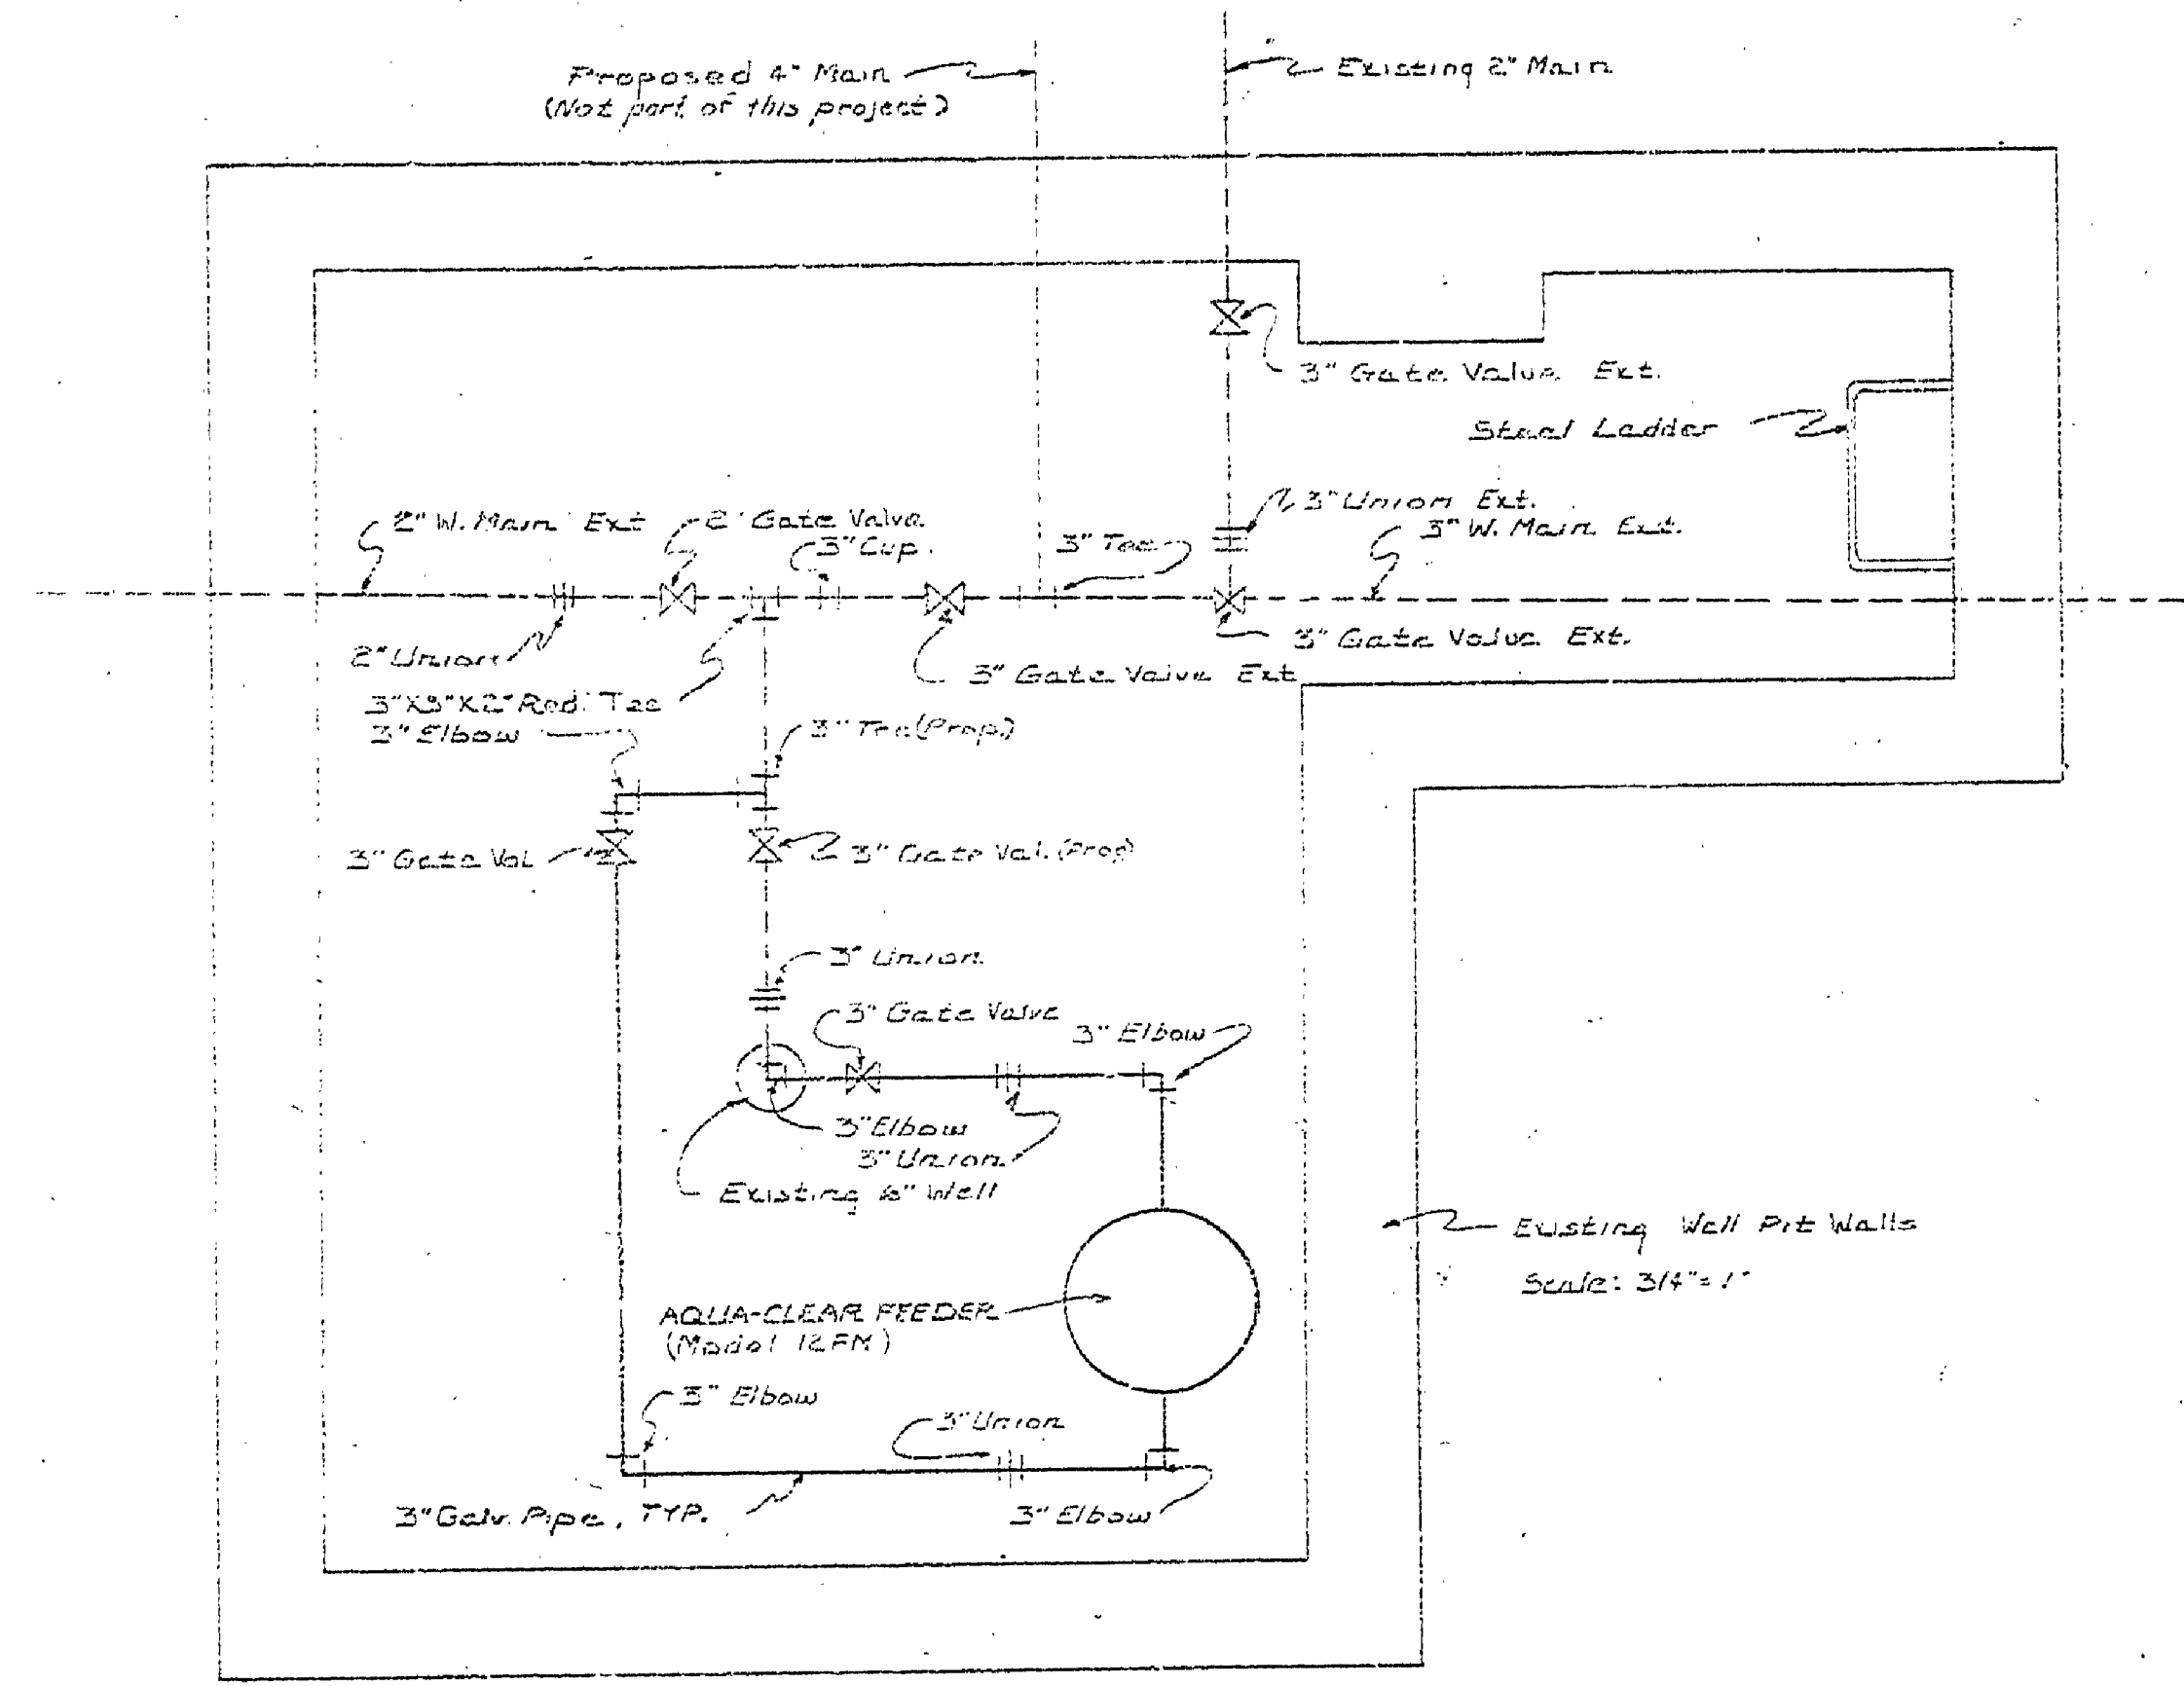 Proposed 4" Main
(Not part of this project)
Existing 2" Main
3" Gate Valve Ext.
Steel Ladder
2" W. Main Ext
2" Gate Valve
3" Cup.
3" Tee
3" Union Ext.
3" W. Main Ext.
2" Union
3" Gate Valve Ext
3" Gate Valve Ext.
3"X3"X2" Red. Tee
3" Elbow
3" Tee (Prop.)
3" Gate Val.
3" Gate Val. (Prop)
3" Union
3" Gate Valve
3" Elbow
3" Elbow
3" Union
Existing 6" Well
Existing Well Pit Walls
Scale: 3/4" = 1"
AQUA-CLEAR FEEDER
(Model 12FM)
3" Elbow
3" Union
3" Galv. Pipe, TYP.
3" Elbow